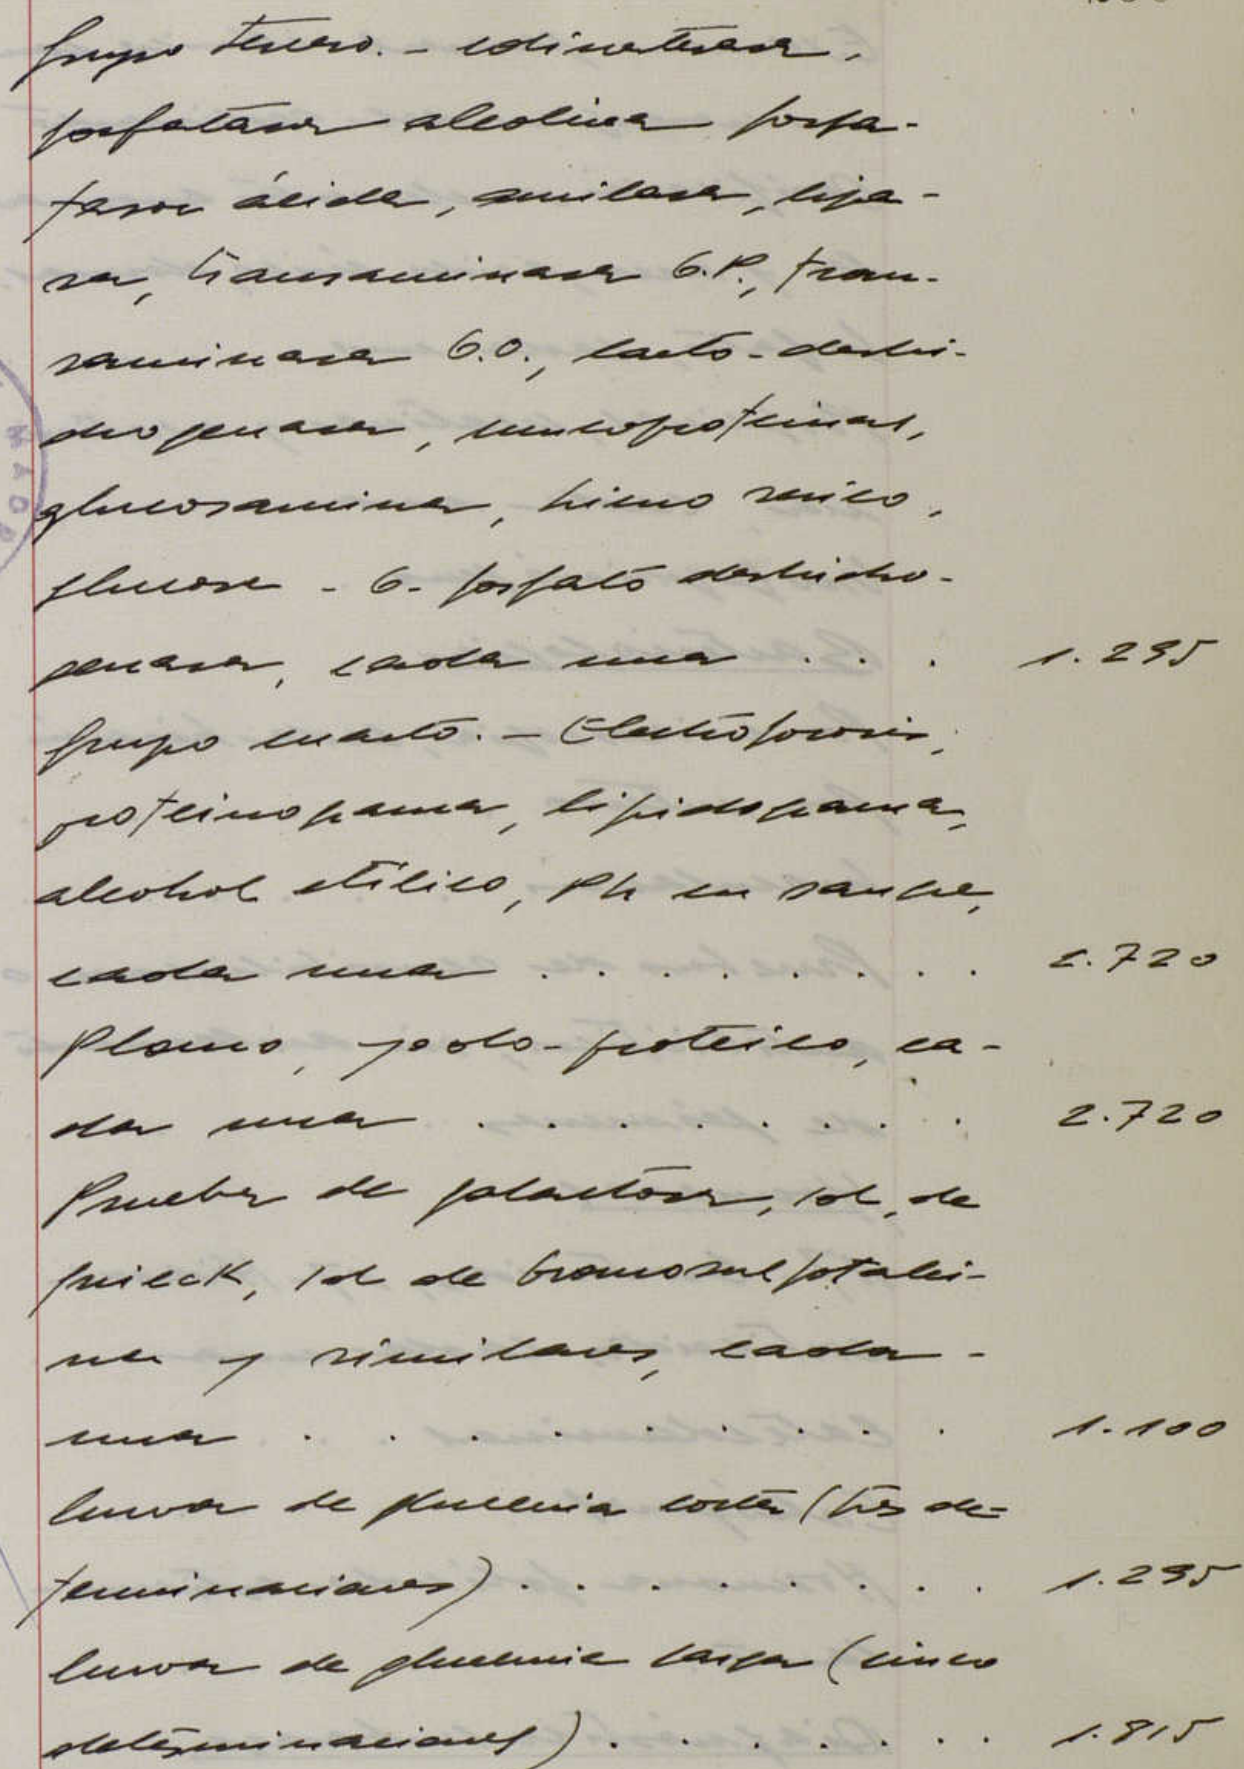 Grupo tercero. - Colinesterasa,
fosfatasa alcalina fosfa-
tasa ácida, amilasa, lipa-
sa, transaminasa G.P., tran-
saminasa G.O., lacto-deshi-
drogenasa, mucoproteinas,
glucosamina, hierro sérico,
glucosa - 6 - fosfato deshidro-
genasa, cada una . . . 1.295
Grupo cuarto. - Electroforesis,
proteinograma, lipidograma,
alcohol etílico, Ph en sangre,
cada una . . . . . . . . 1.720
Plomo, yodo-proteico, ca-
da una . . . . . . . . 2.720
Prueba de galactosa, id. de
Quick, id de bromosulfotalei-
na y similares, cada -
una . . . . . . . . 1.100
Curva de glucemia corta (tres de-
terminaciones) . . . . . . . 1.295
Curva de glucemia larga (cinco
determinaciones) . . . . . . 1.815